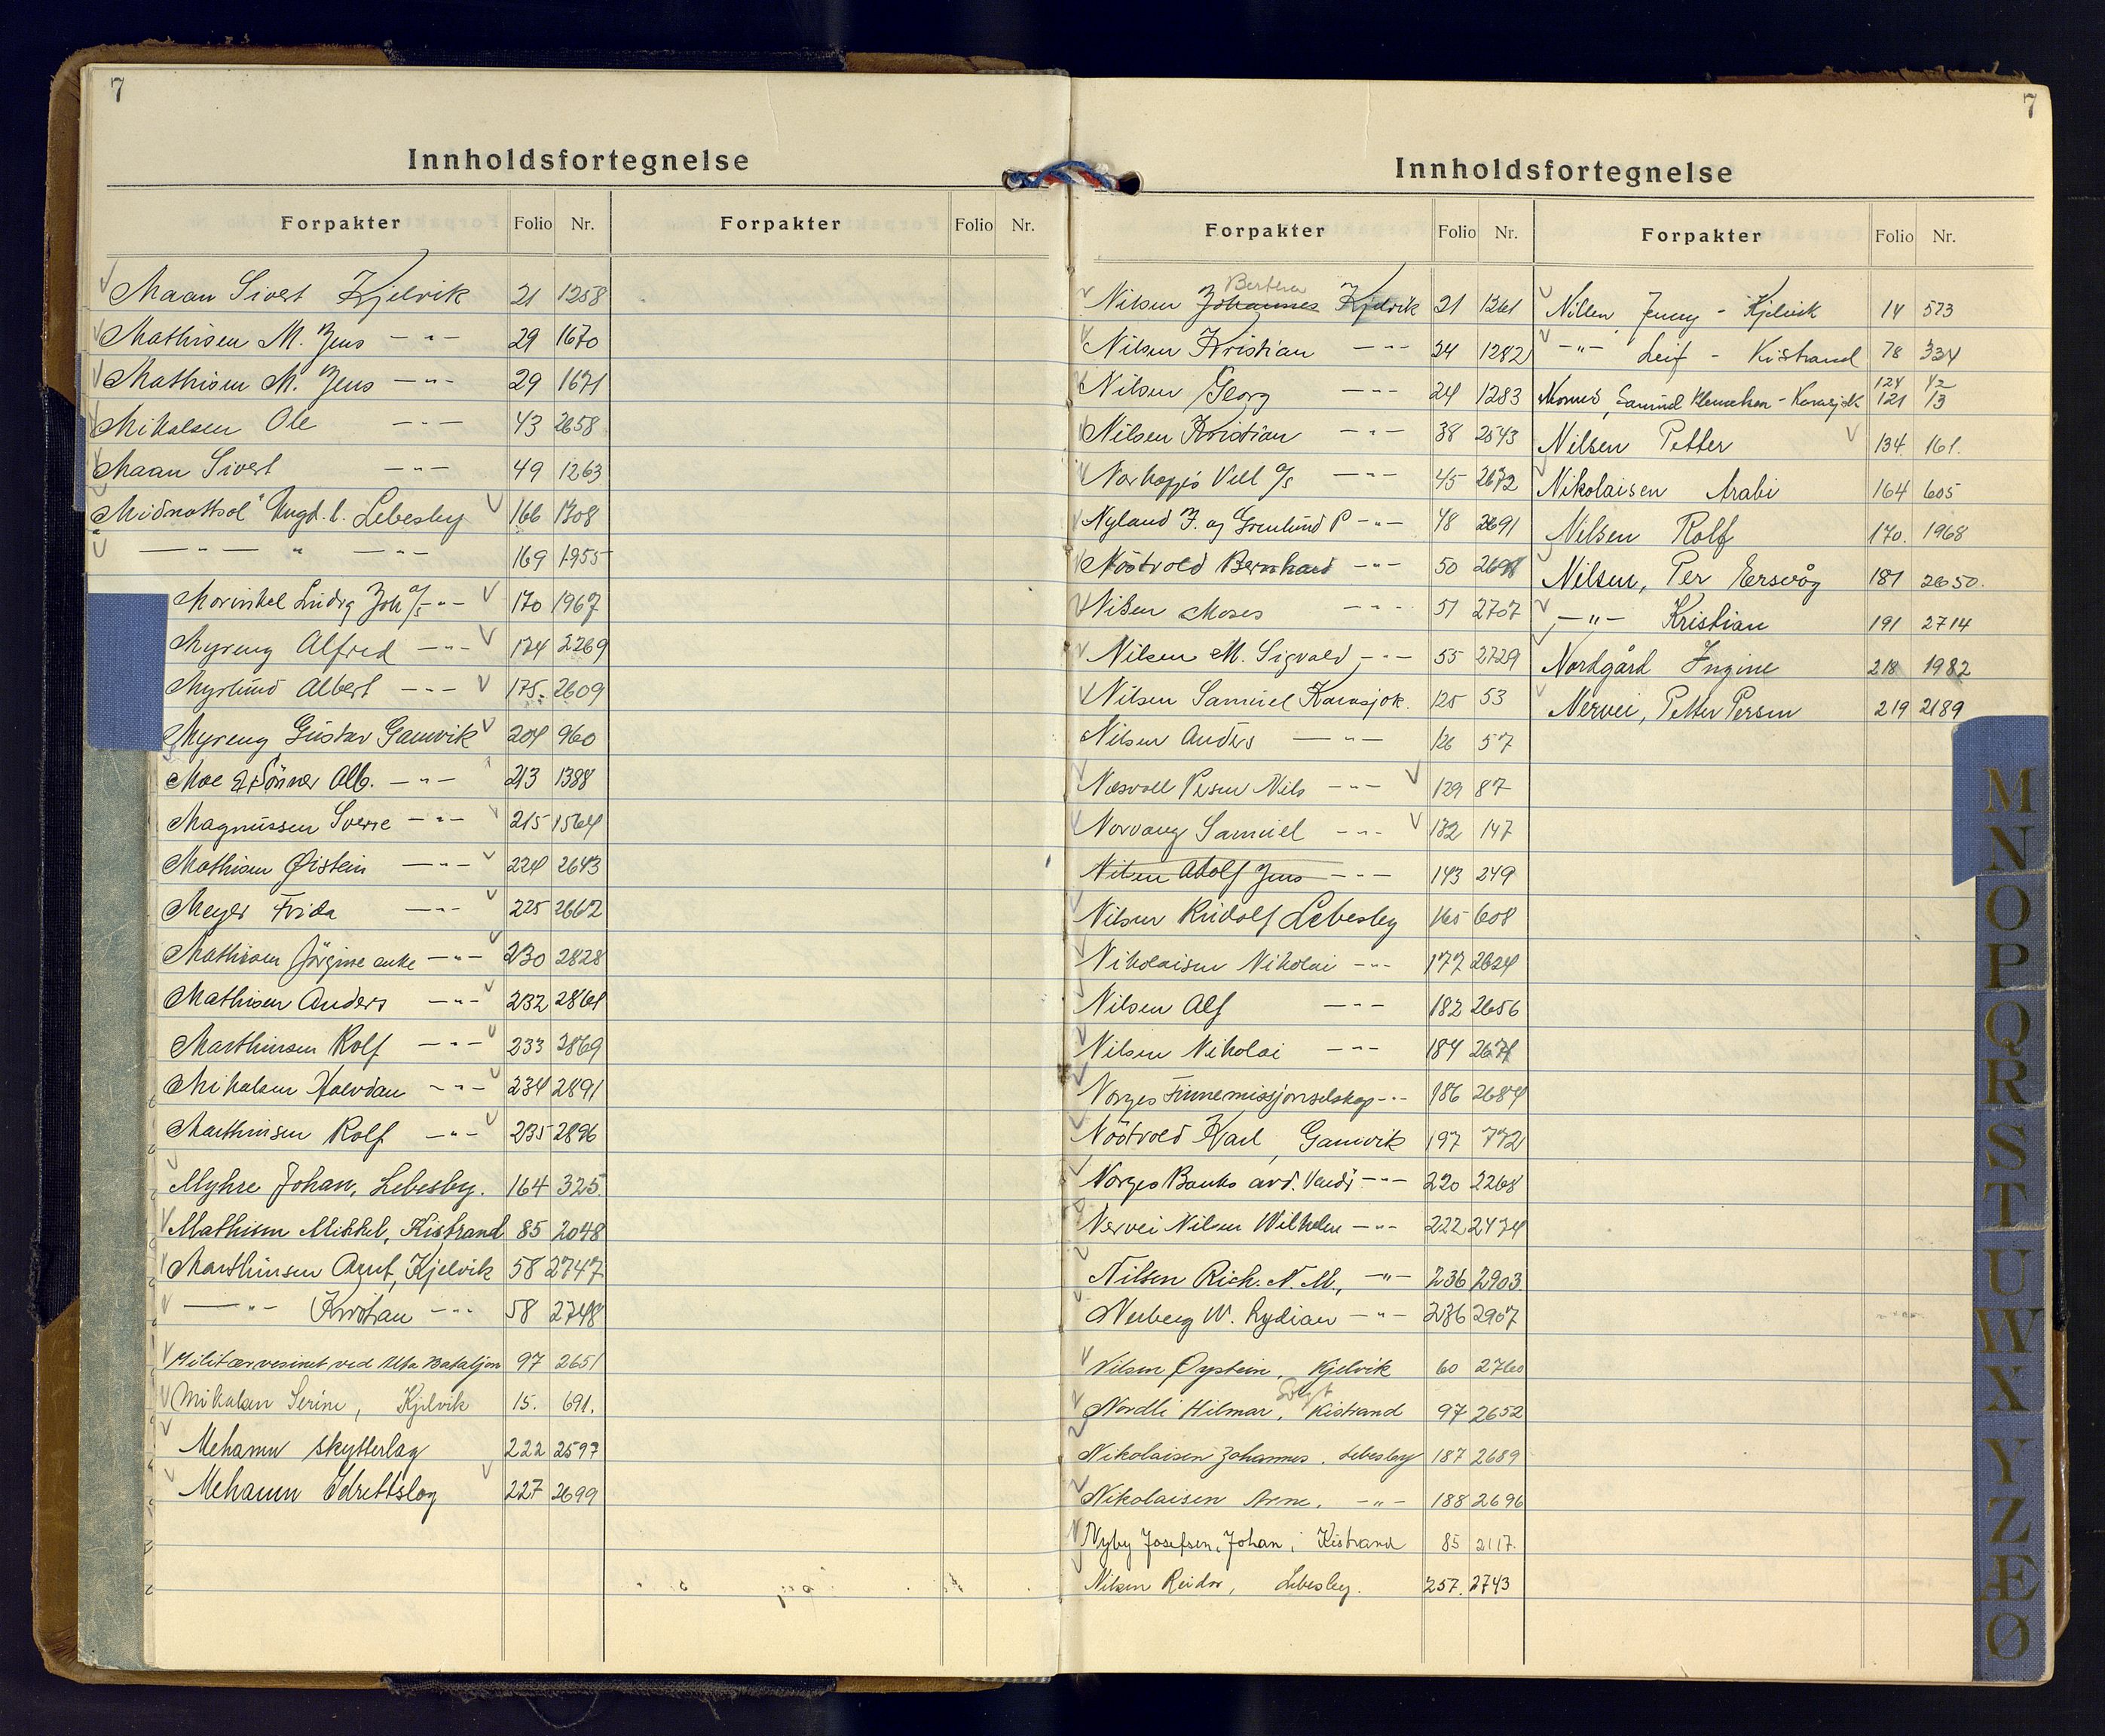 7
Innholdsfortegnelse
Forpakter Folio Nr. Forpakter Folio Nr.
Maan Sivert Kjelvik 21 1258
Mathisen M. Jens - " - 29 1670
Mathisen M. Jens - " - 29 1671
Mikalsen Ole - " - 43 2658
Maan Sivert - " - 49 1263
Midnattsol" Ungd.l. Lebesby 166 1308
- " - " - " - 169 1955
Lndvg Joh a/s - " - 170 1967
Myreng Alfred - " - 174 2269
Myrlund Albert - " - 175. 2609
Myreng Gustav Gamvik 204 960
Moe & Sönner Alb. - " - 213 1388
Magnussen Sverre - " - 215 1564
Mathisen Øistein - " - 224 2643
Meyer Frida - " - 225 2662
Mathisen Jörgine enke - " - 230 2828
Mathisen Anders - " - 232 2864
Marthinsen Rolf - " - 233 2869
Mikalsen Halvdan - " - 234 2891
Marthinsen Rolf - " - 235 2896
Myhre Johan, Lebesby. 164 325
Mathisen Mikkel, Kistrand 85 2048
Marthinsen Arnt, Kjelvik 58 2747
- " - Kristian - " - 58 2748
Militærvesinet ved Alta Bataljon 97 2651
Mikalsen Serine, Kjelvik 15. 691.
Mehamn skytterlag 222 2597
Mehamn Idrettslag 227 2699
7
Innholdsfortegnelse
Forpakter Folio Nr. Forpakter Folio Nr.
Berthea
Nilsen Johannes Kjelvik 21 1261
Nilsen Kristian - " - 24 1282
Nilsen Georg - " - 24 1283
Nilsen Kristian - " - 38 2543
Vell a/s - " - 45 2672
Nyland J. og Grenlund P - " - 48 2691
Nöstvold Bernhard - " - 50 2698
Nilsen Moses - " - 51 2707
Nilsen M. Sigvald - " - 55 2729
Nilsen Samuel Karasjok. 125 53
Nilsen Anders - " - 126 57
Næsvoll Persen Nils - " - 129 87
Norvang Samuel - " - 132 147
Nilsen Adolf Jens - " - 143 249
Nilsen Rudolf Lebesby 165 608
Nikolaisen Nikolai - " - 177 2624
Nilsen Alf - " - 182 2656
Nilsen Nikolai - " - 184 2671
Norges Finnemissjonselskap - " - 186 2684
Nöstvold Karl, Gamvik 197 772
Norges Banks avd. Vardö - " - 220 2268
Nervei Nilsen Wilhelm - " - 222 2474
Nilsen Rich. N. M., - " - 236 2903.
Nerberg W. Lydian - " - 236 2907
Nilsen Øystein, Kjelvik 60 2760
Solgt
Nordli Hilmar, Kistrand 97 2652
Nikolaisen Johannes. Lebesby 187 2689
Nikolaisen Arne. - " - 188 2696
Nyby Josefsen, Johan, Kistrand 85 2117.
Nilsen Reidar, Lebesby. 257. 2743
Nilsen Jenny - Kjelvik 14 573
- " - Leif - Kistrand 78 334
124 42
Samuel Klemetsen - Karasjok 121 13
Nilsen Petter 134. 161.
Nikolaisen Arabi 164 605
Nilsen Rolf 170. 1968
Nilsen, Per Eersvåg 181 2650.
- " - Kristian 191 2714
Nordgård Ingine 218 1982
Nervei, Petter Persen 219 2189
M
N
O
P
Q
R
S
T
U
W
X
Y
Z
Æ
Ø